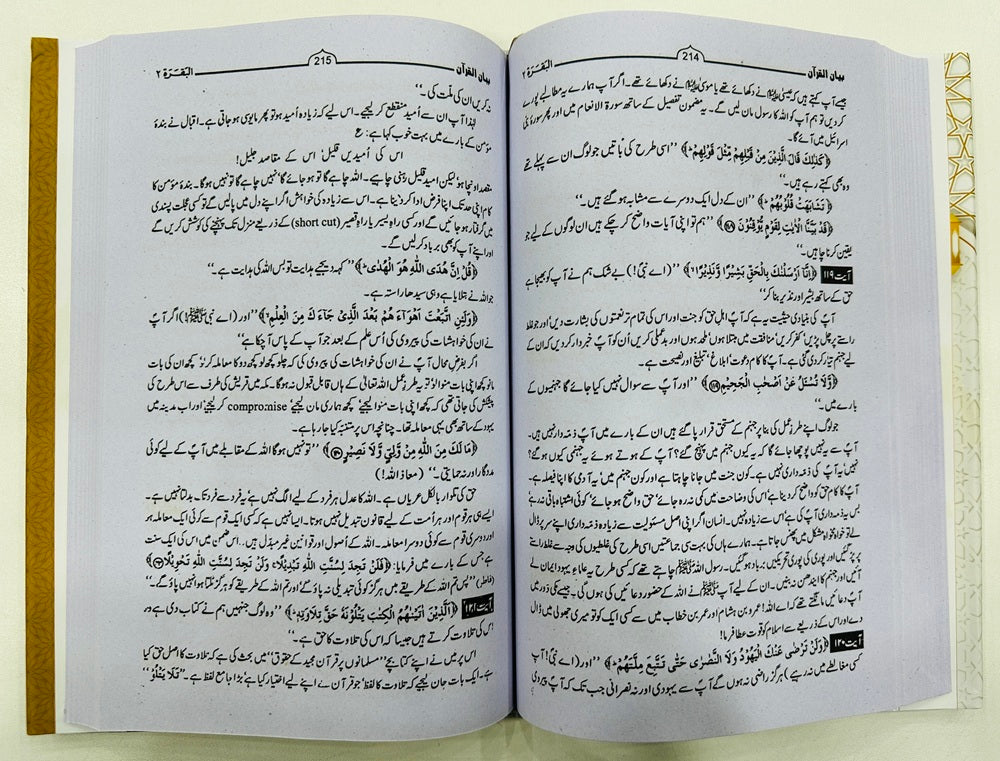 بیان القرآن 214 البَقَرَة ۲
جیسے آپ کہتے ہیں کہ عیسیٰ ﷤ نے دکھائے تھے یا موسیٰ ﷤ نے دکھائے تھے۔ اگر آپ ہمارے یہ مطالبے پورے
کر دیں تو ہم آپ کو اللہ کا رسول مان لیں گے۔ یہ مضمون تفصیل کے ساتھ سورۃ الانعام میں اور پھر سورۂ بنی
اسرائیل میں آئے گا۔
﴿كَذٰلِكَ قَالَ الَّذِیْنَ مِنْ قَبْلِهِمْ مِّثْلَ قَوْلِهِمْ ؕ﴾ ’’اسی طرح کی باتیں جو لوگ ان سے پہلے تھے
وہ بھی کہتے رہے ہیں۔‘‘
﴿تَشَابَهَتْ قُلُوْبُهُمْ ؕ﴾ ’’ان کے دل ایک دوسرے سے مشابہ ہو گئے ہیں۔‘‘
﴿قَدْ بَیَّنَّا الْاٰیٰتِ لِقَوْمٍ یُّوْقِنُوْنَ ﴿۱۱۸﴾﴾ ’’ہم تو اپنی آیات واضح کر چکے ہیں ان لوگوں کے لیے جو
یقین کرنا چاہیں۔‘‘
آیت ۱۱۹ ﴿اِنَّاۤ اَرْسَلْنٰكَ بِالْحَقِّ بَشِیْرًا وَّنَذِیْرًا ۙ﴾ ’’(اے نبیؐ!) بے شک ہم نے آپ کو بھیجا ہے
حق کے ساتھ بشیر اور نذیر بنا کر‘‘
آپؐ کی بنیادی حیثیت یہ ہے کہ آپؐ اہلِ حق کو جنت اور اس کی تمام تر نعمتوں کی بشارت دیں‘ اور جو غلط
راستے پر چل پڑیں‘ کفر کریں‘ منافقت میں مبتلا ہوں‘ ملحد ہوں اور بدعملی کریں اُن کو آپؐ خبردار کر دیں کہ ان کے
لیے جہنم تیار کر دی گئی ہے۔ آپؐ کا کام دعوت‘ ابلاغ‘ تبلیغ اور نصیحت ہے۔
﴿وَّلَا تُسْـَٔلُ عَنْ اَصْحٰبِ الْجَحِیْمِ ﴿۱۱۹﴾﴾ ’’اور آپؐ سے سوال نہیں کیا جائے گا جہنمیوں کے
بارے میں۔‘‘
جو لوگ اپنے طرزِ عمل کی بنا پر جہنم کے مستحق قرار پا گئے ہیں ان کے بارے میں آپؐ ذمہ دار نہیں ہیں۔
آپؐ سے یہ نہیں پوچھا جائے گا کہ یہ کیوں جہنم میں پہنچ گئے؟ آپؐ کے ہوتے ہوئے یہ جہنمی کیوں ہو گئے؟
نہیں یہ آپؐ کی ذمہ داری نہیں ہے۔ کون جنت میں جانا چاہتا ہے اور کون جہنم میں‘ یہ آدمی کا اپنا فیصلہ ہے۔
آپؐ کا کام حق کو واضح کر دینا ہے‘ اس کی وضاحت میں کمی نہ رہ جائے‘ حق واضح ہو جائے‘ کوئی اشتباہ باقی نہ رہے۔
بس یہ ذمہ داری آپؐ کی ہے‘ اس سے زیادہ نہیں۔ انسان اگر اپنی اصل مسئولیت سے زیادہ ذمہ داری اپنے سر پر ڈال
لے تو خواہ مخواہ مشکل میں پھنس جاتا ہے۔ ہمارے ہاں کی بہت سی جماعتیں اسی طرح کی غلطیوں کی وجہ سے غلط راستے
پر پڑ گئیں اور پوری کی پوری تحریکیں برباد ہو گئیں۔ رسول اللہ ﷺ چاہتے تھے کہ کسی طرح یہ علماءِ یہود ایمان لے
آئیں اور جہنم کا ایندھن نہ بنیں۔ ان کے لیے آپ ﷺ نے اللہ کے حضور دعائیں کی ہوں گی۔ جیسے مکی دَور میں
آپؐ دعائیں مانگتے تھے کہ اے اللہ! عمرو بن ہشام اور عمر بن خطاب میں سے کسی ایک کو تو میری جھولی میں ڈال
دے اور اس کے ذریعے سے اسلام کو قوت عطا فرما!
آیت ۱۲۰ ﴿وَلَنْ تَرْضٰی عَنْكَ الْیَهُوْدُ وَلَا النَّصٰرٰی حَتّٰی تَتَّبِعَ مِلَّتَهُمْ ؕ﴾ ’’اور (اے نبیؐ! آپ
کسی مغالطے میں نہ رہیے) ہرگز راضی نہ ہوں گے آپؐ سے یہودی اور نہ نصرانی جب تک کہ آپؐ پیروی
بیان القرآن 215 البَقَرَة ۲
نہ کریں ان کی ملت کی۔‘‘
لہٰذا آپ ان سے اُمید منقطع کر لیجیے۔ اس لیے کہ زیادہ اُمید ہو تو پھر مایوسی ہو جاتی ہے۔ اقبال نے بندۂ
مؤمن کے بارے میں بہت خوب کہا ہے: ع
اس کی اُمیدیں قلیل‘ اس کے مقاصد جلیل!
مقصد اونچا ہو‘ لیکن امید قلیل رہنی چاہیے۔ اللہ چاہے گا تو ہو جائے گا‘ نہیں چاہے گا تو نہیں ہوگا۔ بندۂ مؤمن کا
کام اپنی حد تک اپنا فرض ادا کر دینا ہے۔ اس سے زیادہ کی خواہش اگر اپنے دل میں پالیں گے تو کسی عجلت پسندی
میں گرفتار ہو جائیں گے اور کسی راہِ یسیر یا راہِ قصیر (short cut) کے ذریعے منزل تک پہنچنے کی کوشش کریں گے
اور اپنے آپ کو بھی برباد کر لیں گے۔
﴿قُلْ اِنَّ هُدَی اللّٰهِ هُوَ الْهُدٰی ؕ﴾ ’’کہہ دیجیے ہدایت تو بس اللہ کی ہدایت ہے۔‘‘
جو اللہ نے بتلایا ہے وہی سیدھا راستہ ہے۔
﴿وَلَئِنِ اتَّبَعْتَ اَهْوَآءَهُمْ بَعْدَ الَّذِیْ جَآءَكَ مِنَ الْعِلْمِ ۙ﴾ ’’اور (اے نبی ﷺ!) اگر آپؐ
نے ان کی خواہشات کی پیروی کی اُس علم کے بعد جو آپؐ کے پاس آ چکا ہے‘‘
اگر بفرضِ محال آپؐ نے ان کی خواہشات کی پیروی کی کہ چلو کچھ لو کچھ دو کا معاملہ کر لو‘ کچھ ان کی بات
مانو کچھ اپنی بات منوا لو‘ تو یہ طرزِ عمل اللہ تعالیٰ کے ہاں قابل قبول نہ ہوگا۔ مکہ میں قریش کی طرف سے اس طرح کی
پیشکش کی جاتی تھی کہ کچھ اپنی بات منوا لیجیے‘ کچھ ہماری مان لیجیے‘ compromise کر لیجیے‘ اور اب مدینہ میں
یہود کے ساتھ بھی یہی معاملہ تھا۔ چنانچہ اس پر متنبہ کیا جا رہا ہے۔
﴿مَا لَكَ مِنَ اللّٰهِ مِنْ وَّلِیٍّ وَّلَا نَصِیْرٍ ﴿۱۲۰﴾﴾ ’’تو نہیں ہوگا اللہ کے مقابلے میں آپؐ کے لیے کوئی
مددگار اور نہ حمایتی۔‘‘ (معاذ اللہ!)
حق کی تلوار بالکل عریاں ہے۔ اللہ کا عدل ہر فرد کے لیے الگ نہیں ہے‘ یہ فرد سے فرد تک بدلتا نہیں ہے۔
ایسے ہی ہر قوم اور ہر اُمت کے لیے قانون تبدیل نہیں ہوتا۔ ایسا نہیں ہے کہ کسی ایک قوم سے کوئی ایک معاملہ ہو
اور دوسری قوم سے کوئی دوسرا معاملہ۔ اللہ کے اُصول اور قوانین غیر مبدّل ہیں۔ اس ضمن میں اس کی ایک سنت
ہے جس کے بارے میں فرمایا: ﴿فَلَنْ تَجِدَ لِسُنَّتِ اللّٰهِ تَبْدِیْلًا ۚ وَلَنْ تَجِدَ لِسُنَّتِ اللّٰهِ تَحْوِیْلًا ﴿۴۳﴾﴾
(فاطر) ’’پس تم اللہ کے طریقے میں ہرگز کوئی تبدیلی نہ پاؤ گے‘ اور تم اللہ کے طریقے کو ہرگز ٹلتا ہوا نہیں پاؤ گے۔‘‘
آیت ۱۲۱ ﴿اَلَّذِیْنَ اٰتَیْنٰهُمُ الْكِتٰبَ یَتْلُوْنَهٗ حَقَّ تِلَاوَتِهٖ ؕ﴾ ’’وہ لوگ جنہیں ہم نے کتاب دی ہے وہ
اس کی تلاوت کرتے ہیں جیسا کہ اس کی تلاوت کا حق ہے۔‘‘
اس پر میں نے اپنے کتابچے ’’مسلمانوں پر قرآن مجید کے حقوق‘‘ میں بحث کی ہے کہ تلاوت کا اصل حق کیا
ہے۔ ایک بات جان لیجیے کہ تلاوت کا لفظ‘ جو قرآن نے اپنے لیے اختیار کیا ہے‘ بڑا جامع لفظ ہے۔ ’’تَلَا یَتْلُوْ‘‘